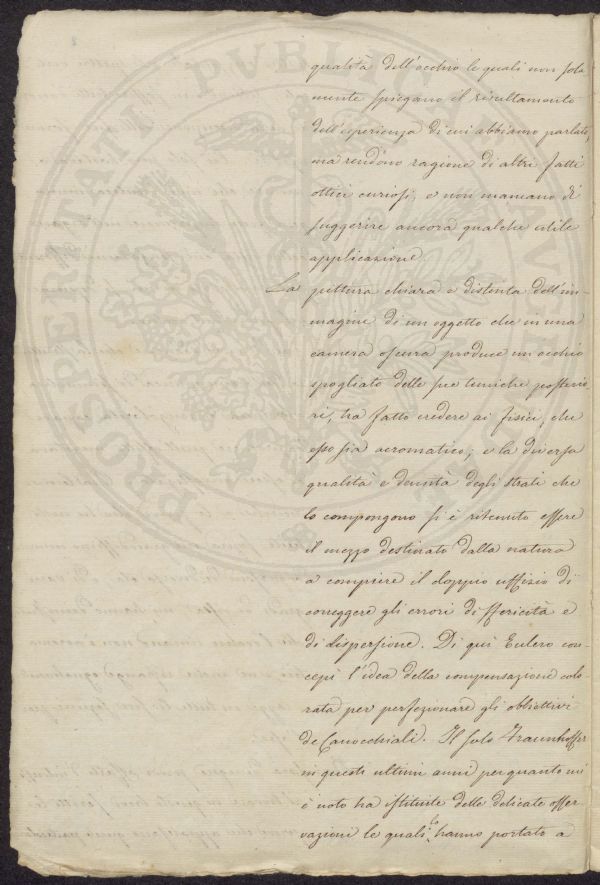 qualità dell'occhio le quali non sola
mente spiegano il risultamento
dell'esperienza di cui abbiamo parlato,
ma rendono ragione di altri fatti
ottici curiosi, e non mancano di
suggerire ancora qualche utile
applicazione.
La pittura chiara e distinta dell'im-
magine di un oggetto che in una
camera oscura produce un occhio
spogliato delle sue tuniche posterio
ri, ha fatto credere ai fisici, che
esso sia acromatico; e la diversa
qualità e densità degli strati che
lo compongono si è ritenuto essere
il mezzo destinato dalla natura
a compiere il doppio uffizio di
correggere gli errori di sfericità e
di dispersione. Di qui Eulero con-
cepì l'idea della compensazione colo
rata per perfezionare gli obbiettivi
de Canocchiali. Il solo Fraunhoffer
in questi ultimi anni per quanto mi
è noto ha istituite delle delicate osser
vazioni le quali lo hanno portato a